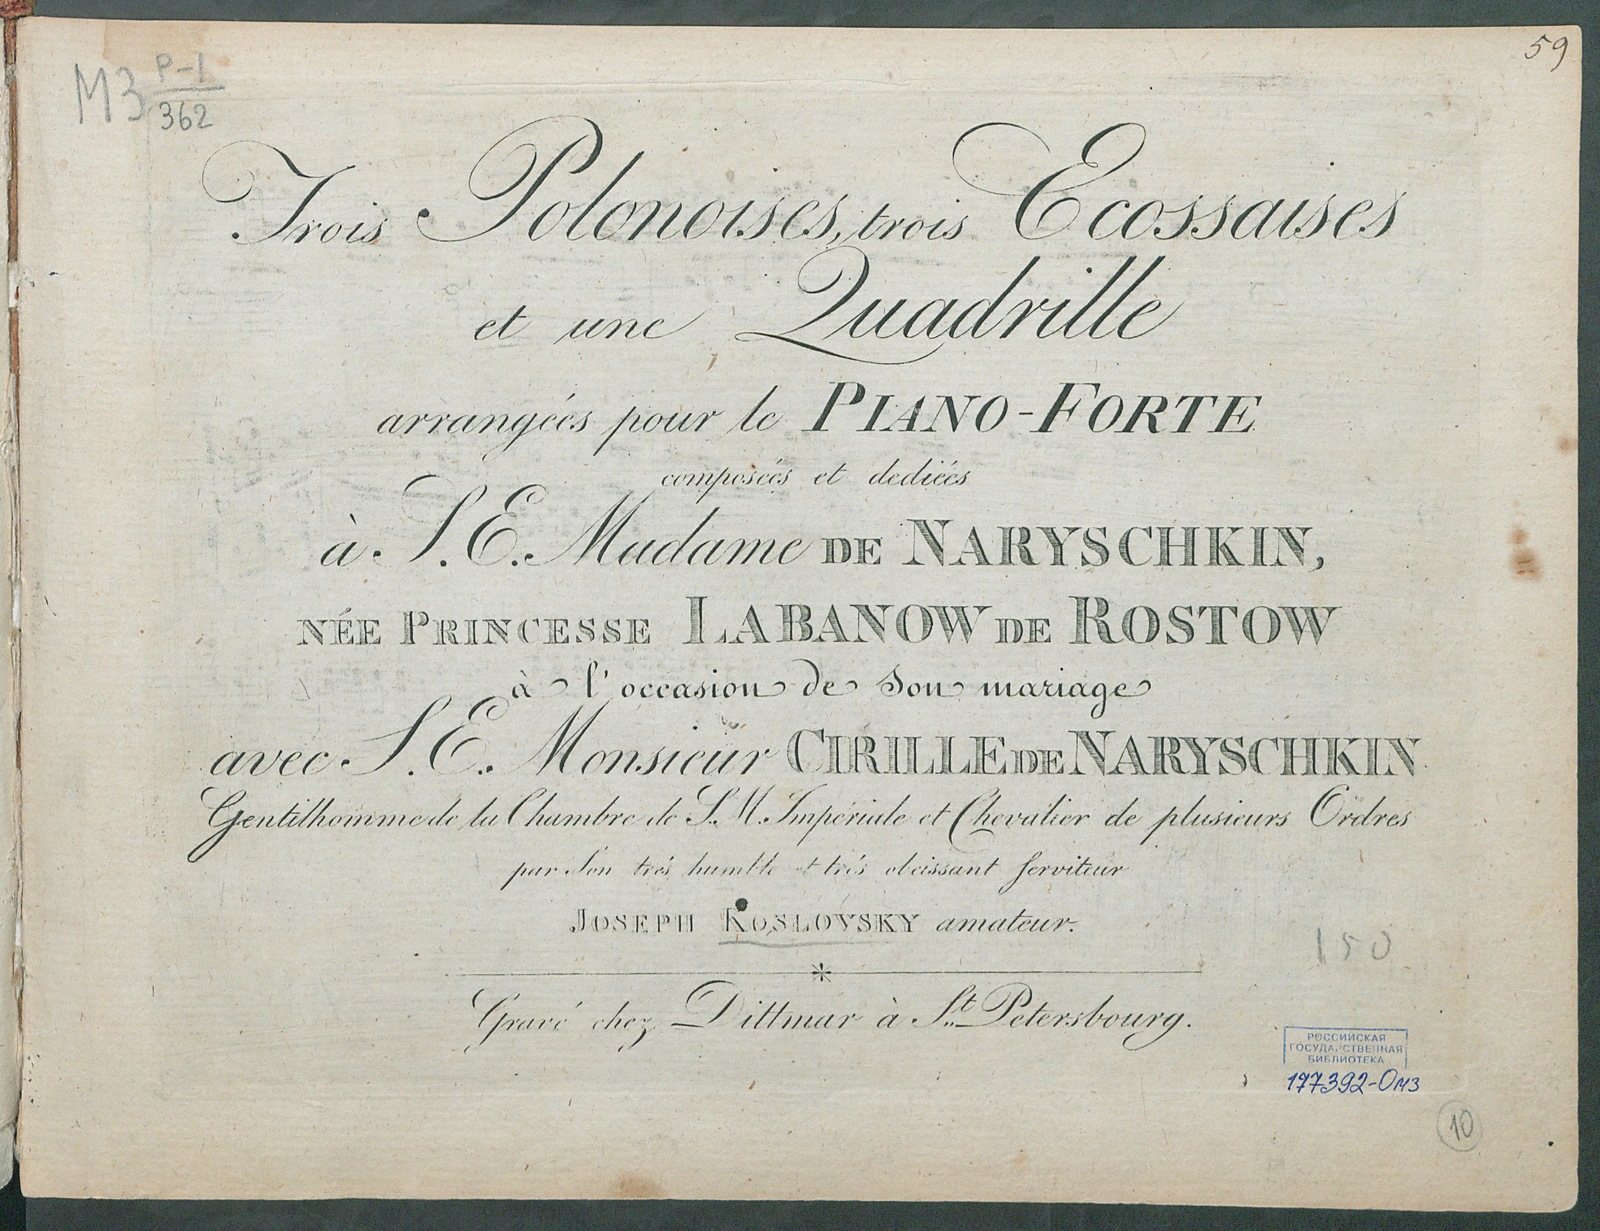 59
МЗ P-1
362
Trois Polonoises, trois Ecossaises
et une Quadrille
arrangéés pour le PIANO-FORTE
composéés et dediéés
à S. E. Madame DE NARYSCHKIN,
NÉE PRINCESSE LABANOW DE ROSTOW
à l'occasion de Son mariage
avec S. E. Monsieur CIRILLE DE NARYSCHKIN
Gentilhomme de la Chambre de S. M. Impériale et Chevalier de plusieurs Ordres
par Son trés humble et trés obeissant Serviteur
JOSEPH KOSLOVSKY amateur.
150
Gravé chez Dittmar à St. Petersbourg.
РОССИЙСКАЯ
ГОСУДАРСТВЕННАЯ
БИБЛИОТЕКА
177392-Омз
10